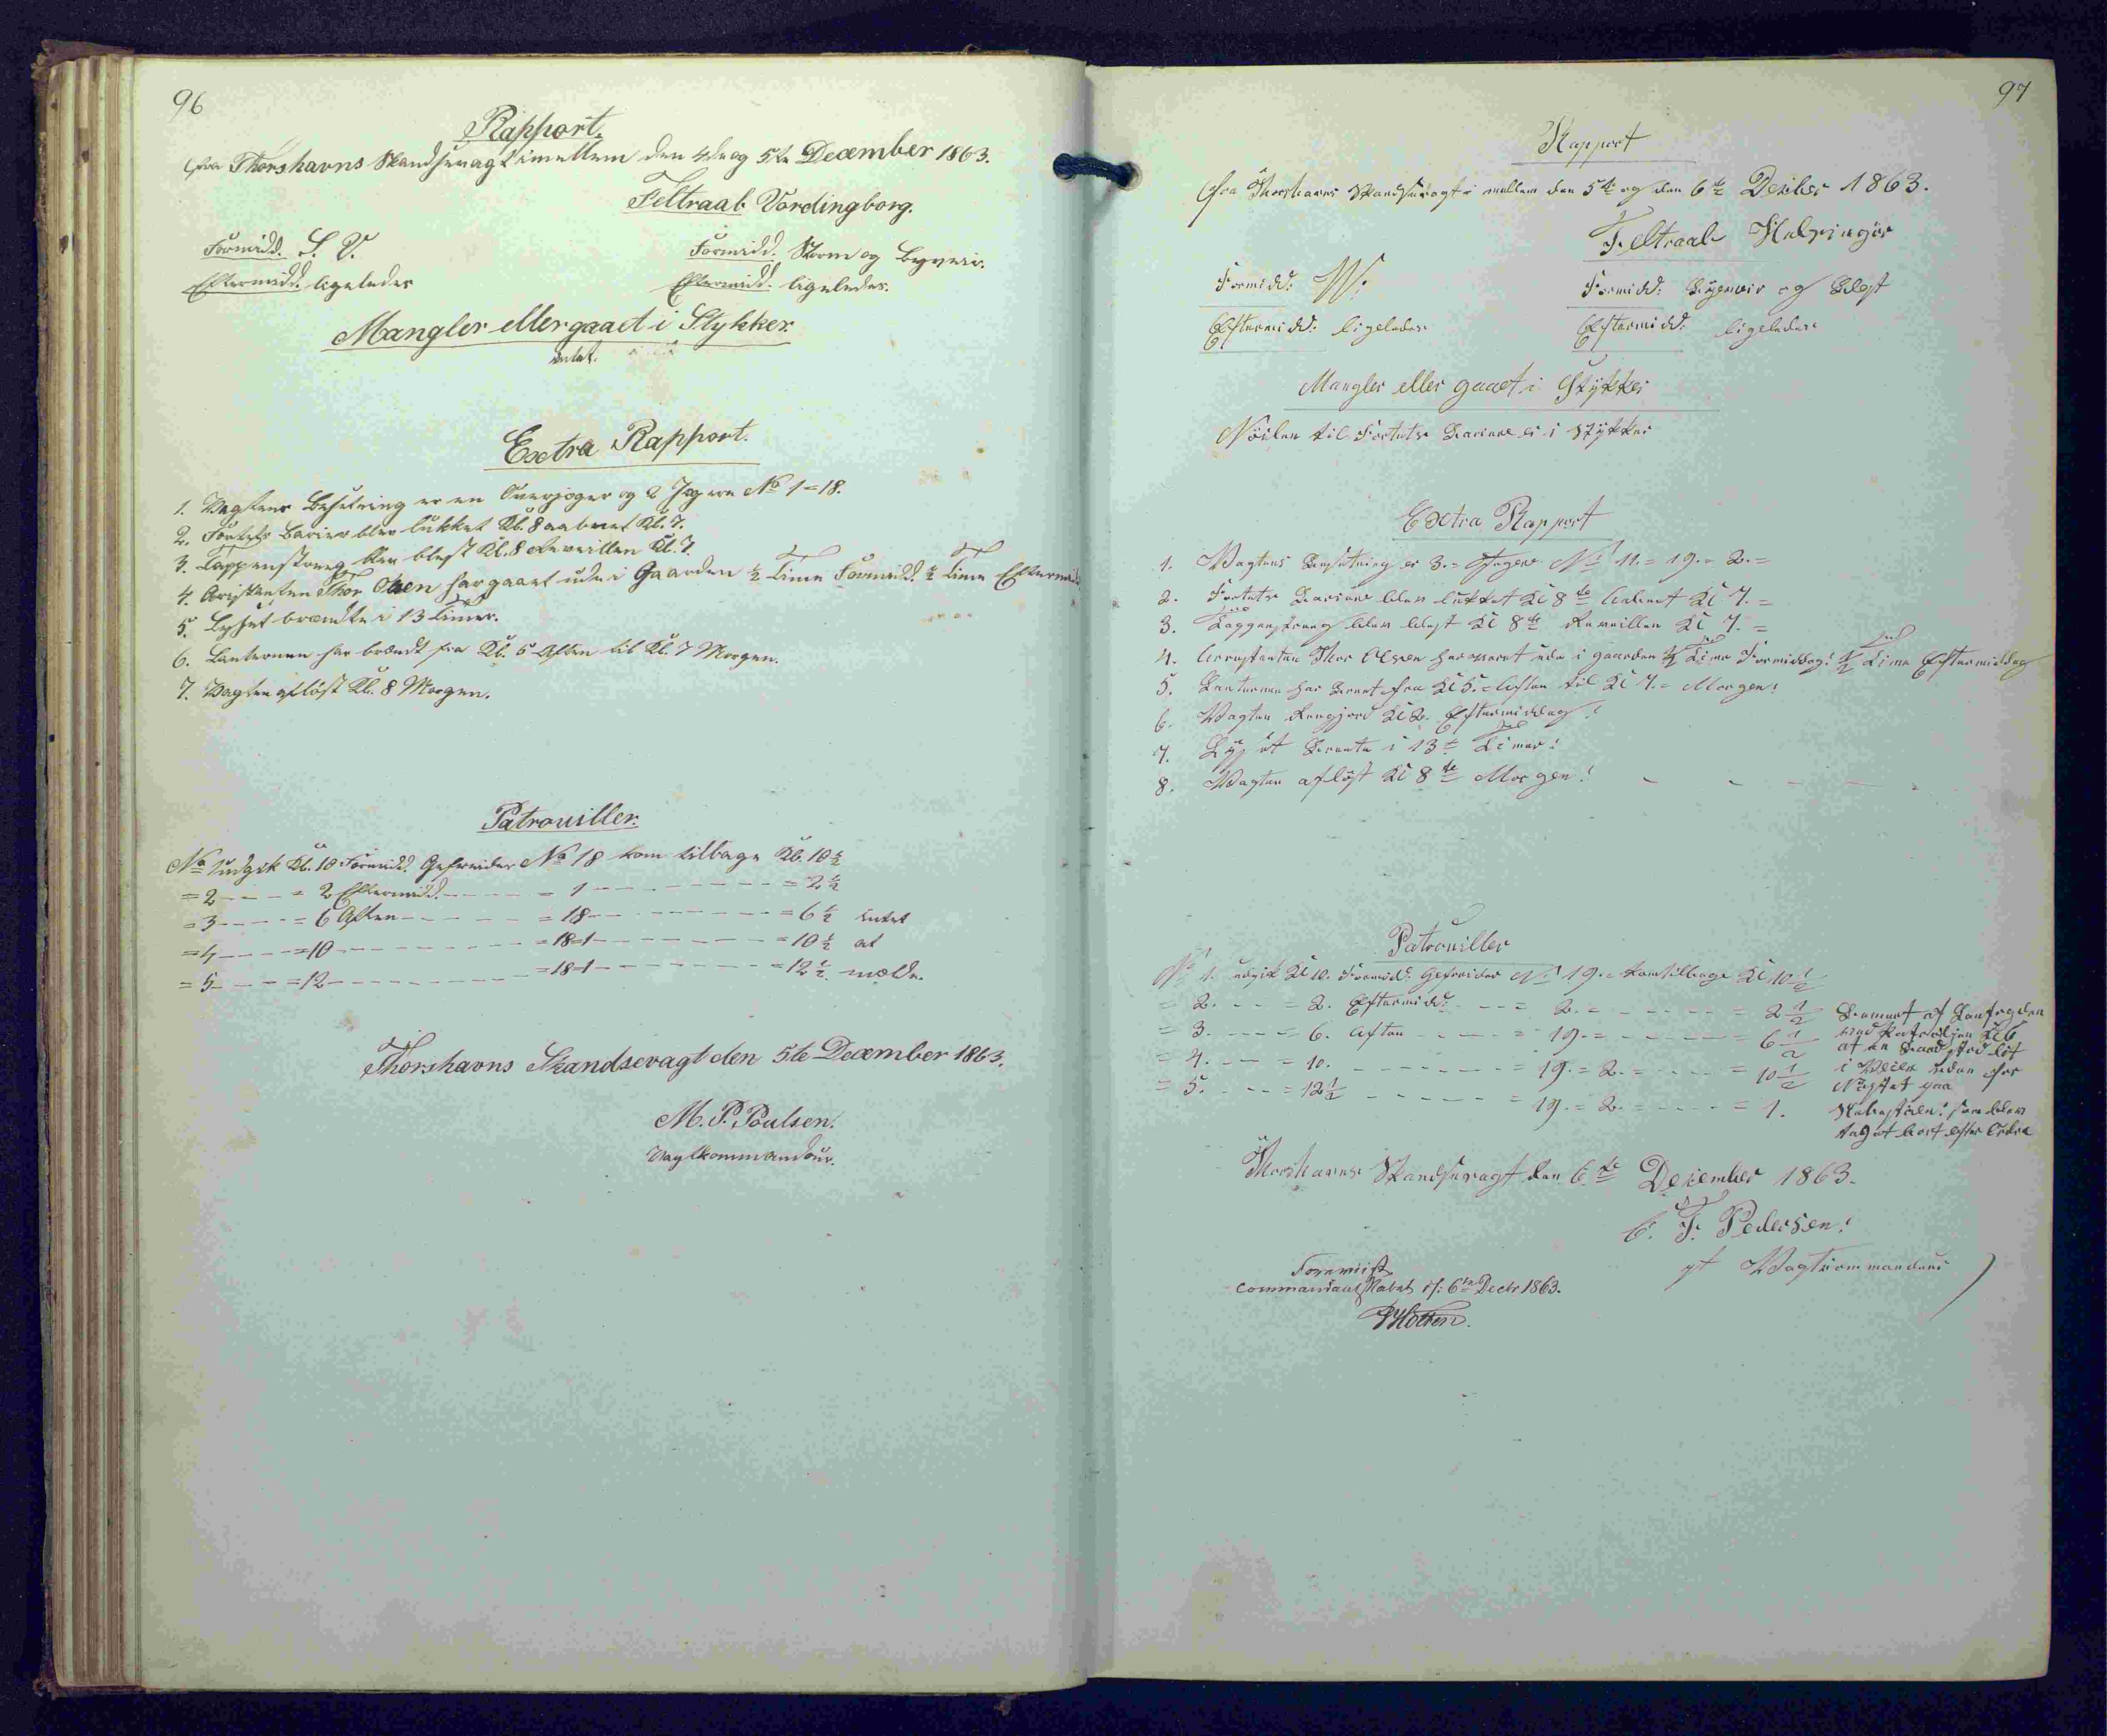 96
Rapport.
fra Thorshavns Skandsevagt imellem den 4de og 5te December 1863.
Feltraab Vordingborg.
Formidd. S. V.
Formidd. Storm og Bygveir.
Eftermidd. ligeledes
Eftermidd. ligeledes.
Mangler eller gaaet i Stykker.
Intet.
Extra Rapport.
1. Vagtens Besetning er en Overjæger og 2 Jægere No 1=18.
2. Fortets Barier blev lukket Kl. 8 aabnet Kl. 7.
3. Tappenstreg blev blest Kl. 8 Reveillen Kl. 7.
4. Aristanten Thor Olsen har gaaet ude i Gaarden ½ Time Formidd. ½ Time Eftermidd
5. Lyset brændte i 13 Timer.
6. Lanternen har brændt fra Kl. 5 Aften til Kl. 7 Morgen.
7. Vagten afløst Kl. 8 Morgen.
Patrouiller.
No 1 udgik Kl. 10 Formidd. Gefreider No 18 kom tilbage Kl. 10½
= 2 - - - = 2 Eftermidd. - - - = 1 - - - - - - = 2½
= 3 - - - = 6 Aften - - - - = 18 - - - - - - = 6½ intet
= 4 - - - = 10 - - - - - - = 18=1 - - - - - = 10½ at
= 5 - - - = 12 - - - - - - = 18=1 - - - - - = 12½ mælde.
Thorshavns Skandsevagt den 5te December 1863.
M. P. Poulsen.
Vagtkommandeur.
97
Rapport
fra Thorshavns Skandsevagt i mellem den 5te og den 6te Desber 1863.
Feltraab Helsingör
Formidd: W.
Formidd: Bygeveir og Blest
Eftermidd: ligeledes
Eftermidd: ligeledes
Mangler eller gaaet i Stykker
Nöilen til Fortets Bariere er i Stykker
Extra Rapport
1. Vagtens Besetning er 3.= Jæger No 11.= 19.= 2.=
2. Fortets Bariere blev lukket Kl 8te aabnet Kl 7.=
3. Tappenstreg blev blest Kl 8te Reveillen Kl 7.=
4. Arrestanten Thor Olsen har været ude i gaarden ½ Time Formiddag! ½ Time Eftermiddag
5. Lanternen har brent fra Kl 5.= Aften til Kl 7.= Morgen!
6. Vagten Rengjord Kl 2. Eftermiddag!
7. Lyset Brente i 13te Timer!
8. Vagten aflöst Kl 8te Morgen!
Patrouiller
No 1. udgik Kl 10. Formidd: Gefreider No 19.= kom tilbage Kl 10½
= 2. - - = 2. Eftermidd: - - = 2.= - - - - = 2½
= 3. - - - = 6. Aften - - - = 19.= - - - - = 6½
= 4. - - = 10. - - - - - = 19.= 2.= - - - = 10½
= 5. - - = 12½ - - - - - = 19.= 2.= - - - = 1.
af en
i Veien uden for
som blev
taget bort efter Ordre
Thorshavns Skandsevagt den 6te Desember 1863.
C. F. Pedersen!
pt Vagtcommandeur
Foreviist
Commandantskabet d: 6te Decbr 1863.